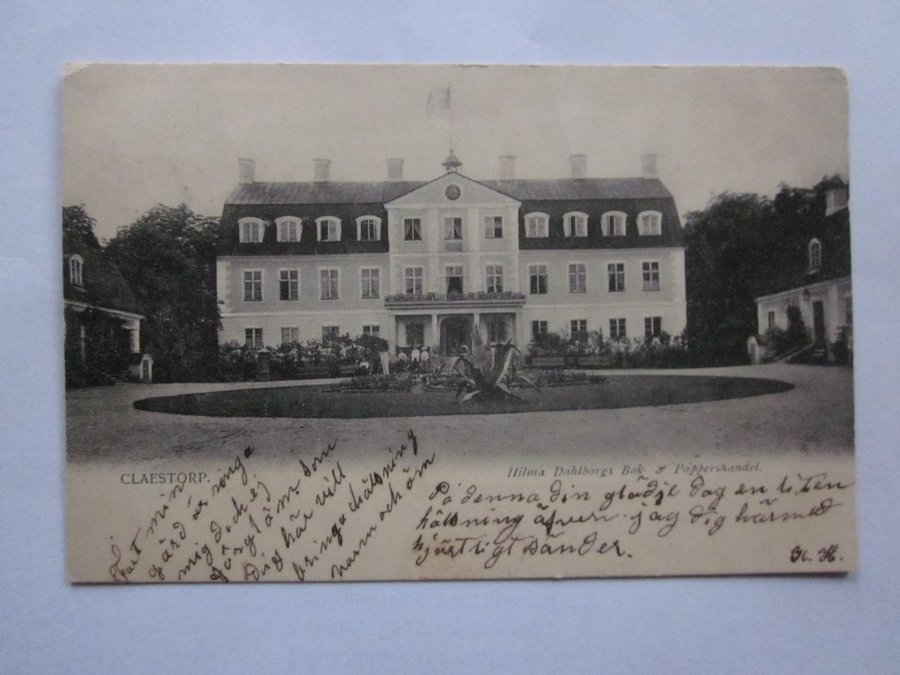 CLAESTORP.
Hilma Dahlborgs Bok & Pappershandel.
Fast min
gärd är ringa
mig dock ej
förglöm som
Dig här vill
bringa hälsning
varm och öm
På denna din glädje dag en liten
hälsning äfven jag dig härmed
hjärtligt sänder.
H. H.